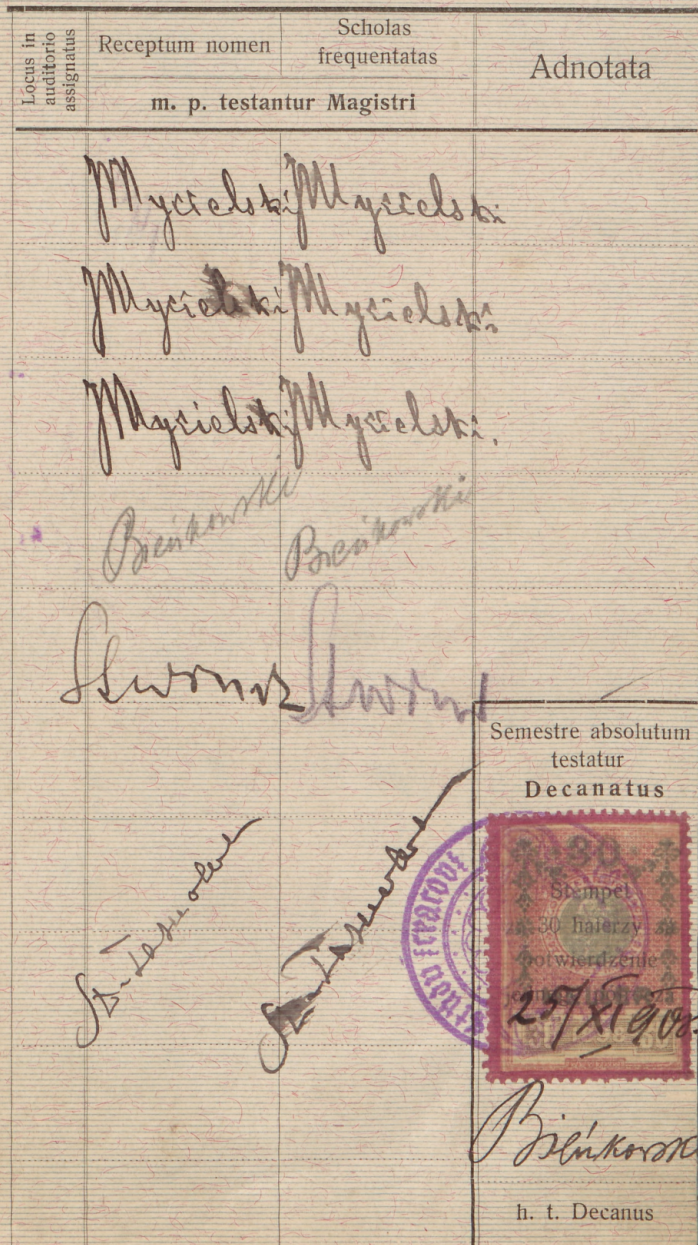 Locus in auditorio assignatus
Receptum nomen
Scholas frequentatas
Adnotata
m. p. testantur Magistri
JMycielski JMycielski
JMycielski JMycielski
JMycielski JMycielski.
Bieńkowski Bieńkowski
Semestre absolutum
testatur
Decanatus
30
Stempel
30 halerzy
potwierdzenie
25/XI 908.
Bieńkowski
h. t. Decanus